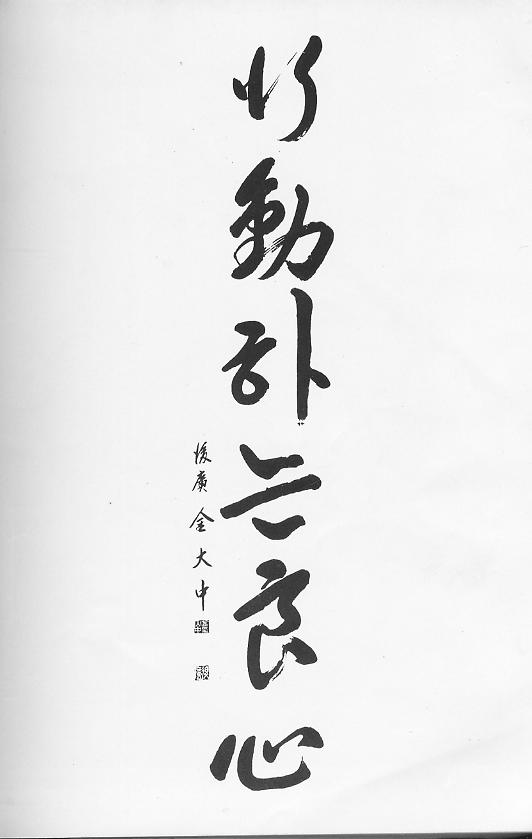 行動하는良心
後廣 金大中